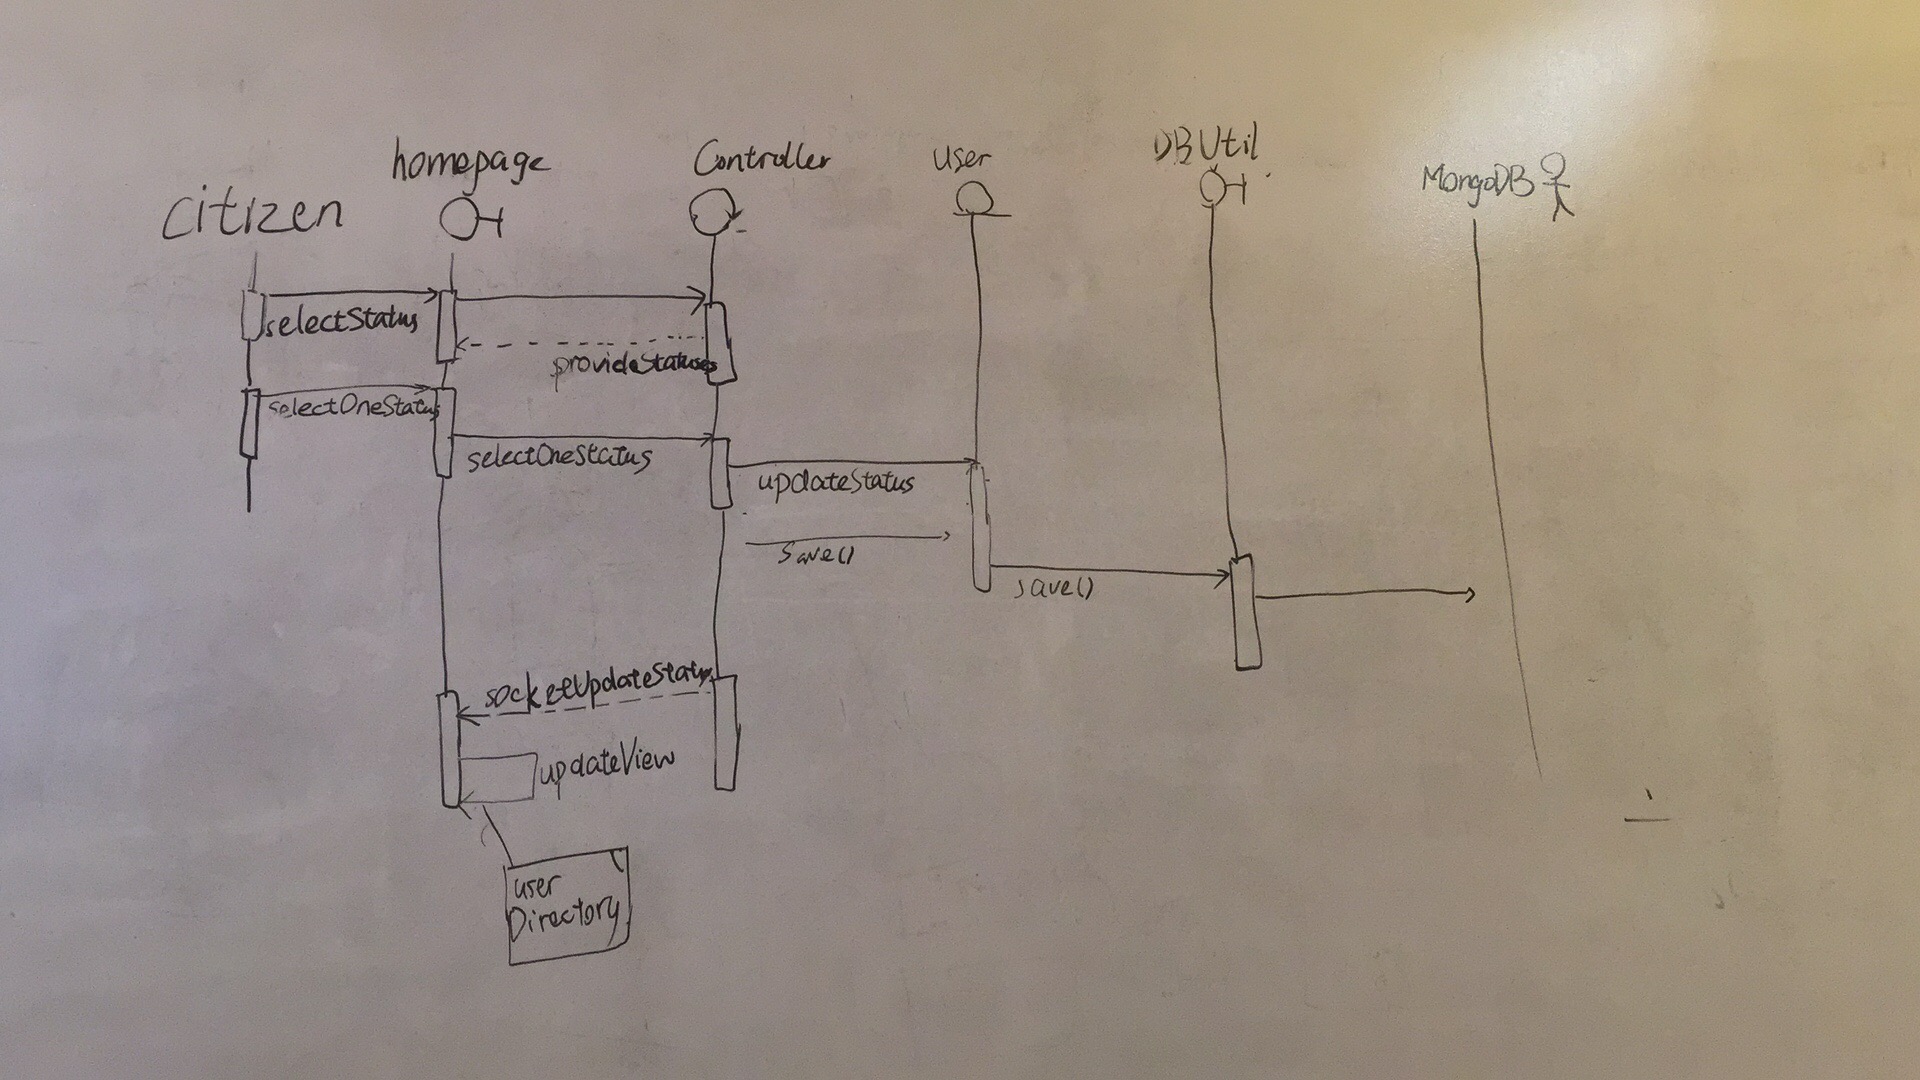 citizen
homepage
Controller
user
DBUtil
MongoDB
selectStatus
provideStatuses
selectOneStatus
selectOneStatus
updateStatus
save()
save()
socketUpdateStatus
updateView
user
Directory